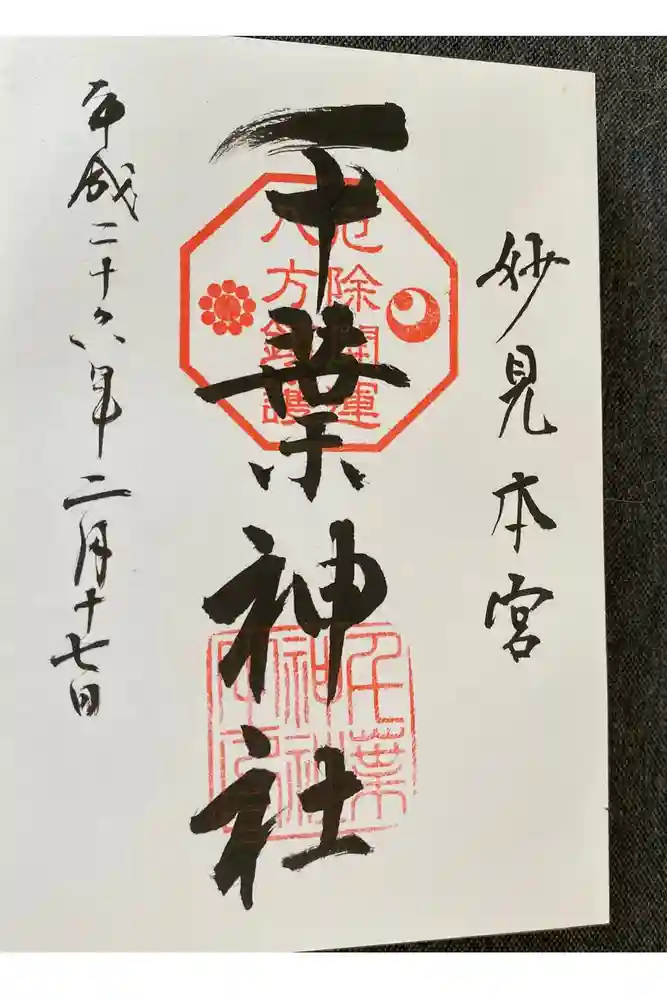 妙見本宮
千葉神社
厄除開運
八方錢護
千葉
神社
本宮
平成二十六年二月十七日